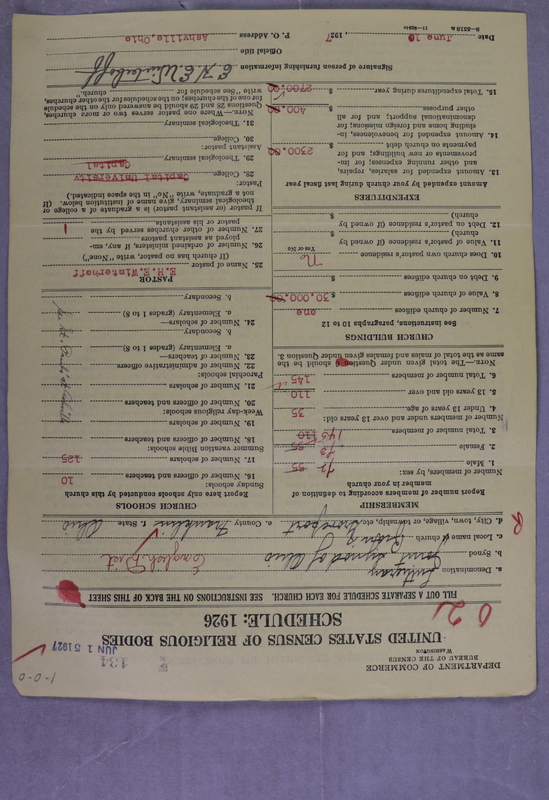 1-0-0
DEPARTMENT OF COMMERCE
BUREAU OF THE CENSUS
WASHINGTON
134
JUN 15 1927
UNITED STATES CENSUS OF RELIGIOUS BODIES
SCHEDULE: 1926
FILL OUT A SEPARATE SCHEDULE FOR EACH CHURCH. SEE INSTRUCTIONS ON THE BACK OF THIS SHEET
a. Denomination Lutheran
b. Synod Joint Synod of Ohio English Dist
c. Local name of church
d. City, town, village, or township, etc. Groveport e. County Franklin f. State Ohio
MEMBERSHIP
Report number of members according to definition of
member in your church
Number of members, by sex:
1. Male 72 55
2. Female 73 55
3. Total number of members 145 110
Number of members under and over 13 years old:
4. Under 13 years of age 35
5. 13 years old and over 110
6. Total number of members 145
NOTE.—The total given under Question 6 should be the
same as the total of males and females given under Question 3.
CHURCH BUILDINGS
See instructions, paragraphs 10 to 12
7. Number of church edifices one
8. Value of church edifices $ 30,000.00
9. Debt on church edifices $
10. Does church own pastor's residence no
Yes or No
11. Value of pastor's residence (if owned by
church) $
12. Debt on pastor's residence (if owned by
church) $
EXPENDITURES
Amount expended by your church during last fiscal year
13. Amount expended for salaries, repairs,
and other running expenses; for im-
provements or new buildings; and for
payments on church debt $ 2300.00
14. Amount expended for benevolences, in-
cluding home and foreign missions; for
denominational support; and for all
other purposes $ 400.00
15. Total expenditures during year $ 2700.00
CHURCH SCHOOLS
Report here only schools conducted by this church
Sunday schools:
16. Number of officers and teachers 10
17. Number of scholars 125
Summer vacation Bible schools:
18. Number of officers and teachers
19. Number of scholars
Week-day religious schools:
20. Number of officers and teachers
21. Number of scholars
Parochial schools:
22. Number of administrative officers
23. Number of teachers—
a. Elementary (grades 1 to 8)
b. Secondary
24. Number of scholars—
a. Elementary (grades 1 to 8)
b. Secondary
PASTOR
25. Name of pastor E.H.E. Winterhoff
(If church has no pastor, write "None")
26. Number of ordained ministers, if any, em-
ployed as assistant pastors
27. Number of other churches served by the
pastor or his assistants 1
If pastor (or assistant pastor) is a graduate of a college or
theological seminary, give name of institution below. (If
not a graduate, write "No" in the space indicated.)
Pastor:
28. College Capital University
29. Theological seminary Capital
Assistant pastor:
30. College
31. Theological seminary
NOTE.—Where one pastor serves two or more churches,
Questions 28 and 29 should be answered only on the schedule
for one of the churches; on the schedules for the other churches,
write "See schedule for church."
Signature of person furnishing information E H E Winterhoff
Official title
Date June 10, 1927 P. O. Address Ashville, Ohio